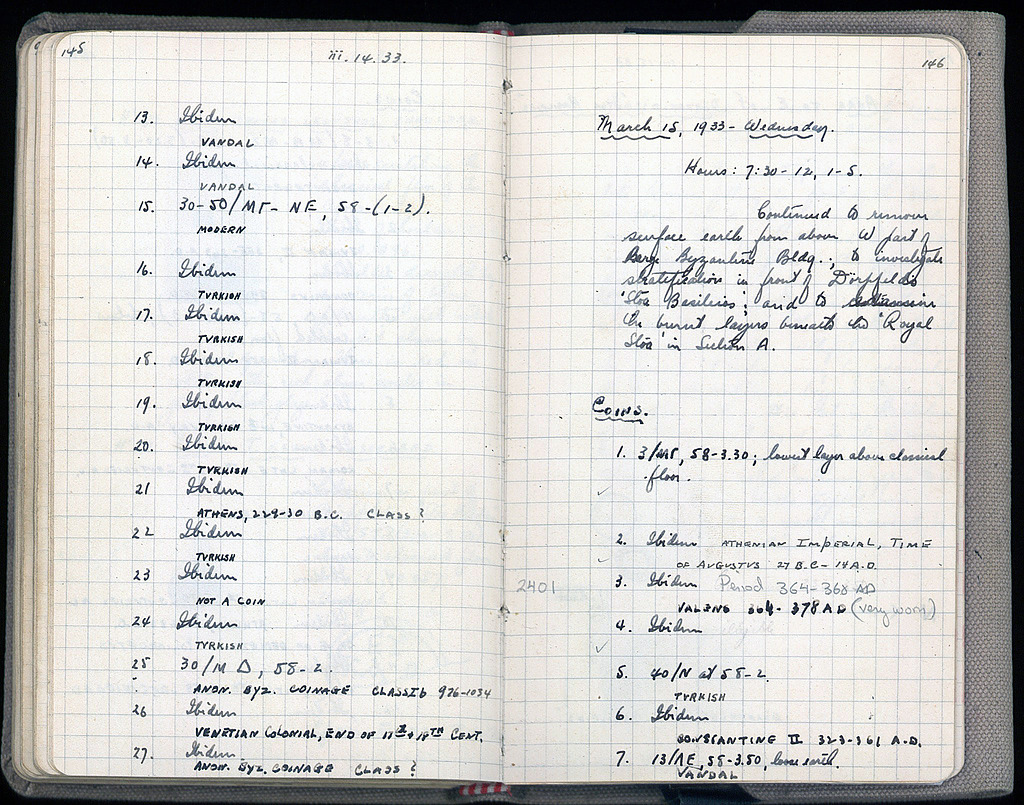 145
iii. 14. 33.
13. Ibidem
VANDAL
14. Ibidem
VANDAL
15. 30-50/ΜΓ - ΝΕ, 58-(1-2).
MODERN
16. Ibidem
TVRKISH
17. Ibidem
TVRKISH
18. Ibidem
TVRKISH
19. Ibidem
TVRKISH
20. Ibidem
TVRKISH
21 Ibidem
ATHENS, 229-30 B.C. CLASS ?
22 Ibidem
TVRKISH
23 Ibidem
NOT A COIN
24 Ibidem
TVRKISH
25 30/Μ Δ, 58-2.
ANON. BYZ. COINAGE CLASS I b 976-1034
26 Ibidem
VENETIAN COLONIAL, END OF 17th + 18TH CENT.
27. Ibidem
ANON. BYZ. COINAGE CLASS ?
146
March 15, 1933 - Wednesday.
Hours: 7:30-12, 1-5.
Continued to remove
surface earth from above W part of
Large Byzantine Bldg., to investigate
stratification in front of Dörpfeld's
'Stoa Basileios', and to
the burnt layers beneath the 'Royal
Stoa' in Section A.
Coins.
1. 3/ΜΓ, 58-3.30; lowest layer above classical
floor.
2. Ibidem ATHENIAN IMPERIAL, TIME
OF AUGUSTUS 27 B.C - 14 A.D.
2401
3. Ibidem Period 364-368 AD
VALENS 364-378 AD (very worn)
4. Ibidem
5. 40/N at 58-2.
TVRKISH
6. Ibidem
CONSTANTINE II 323-361 A.D.
7. 13/ΛΕ, 58-3.50, loose earth.
VANDAL